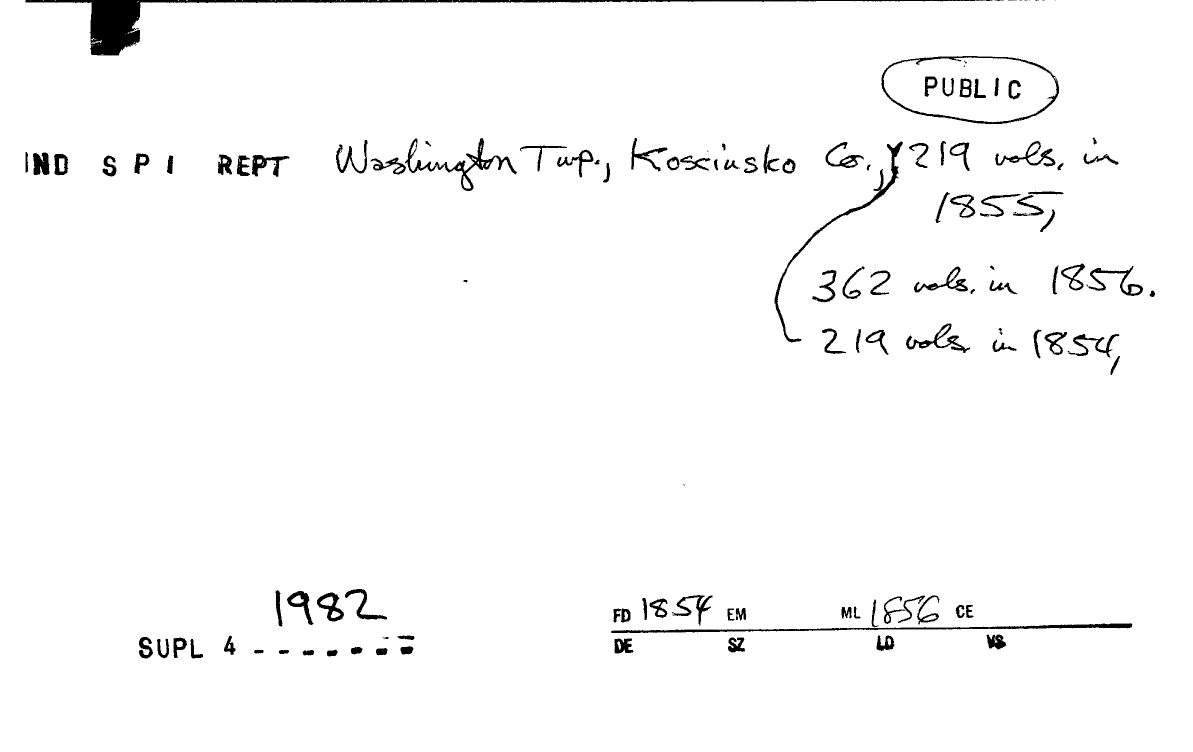 PUBLIC
IND S P I REPT Washington Twp., Kosciusko Co., 219 vols. in
1855,
362 vols. in 1856.
219 vols. in 1854,
1982
SUPL 4 - - - - - - -
FD 1854 EM ML 1856 CE
DE SZ LD VS